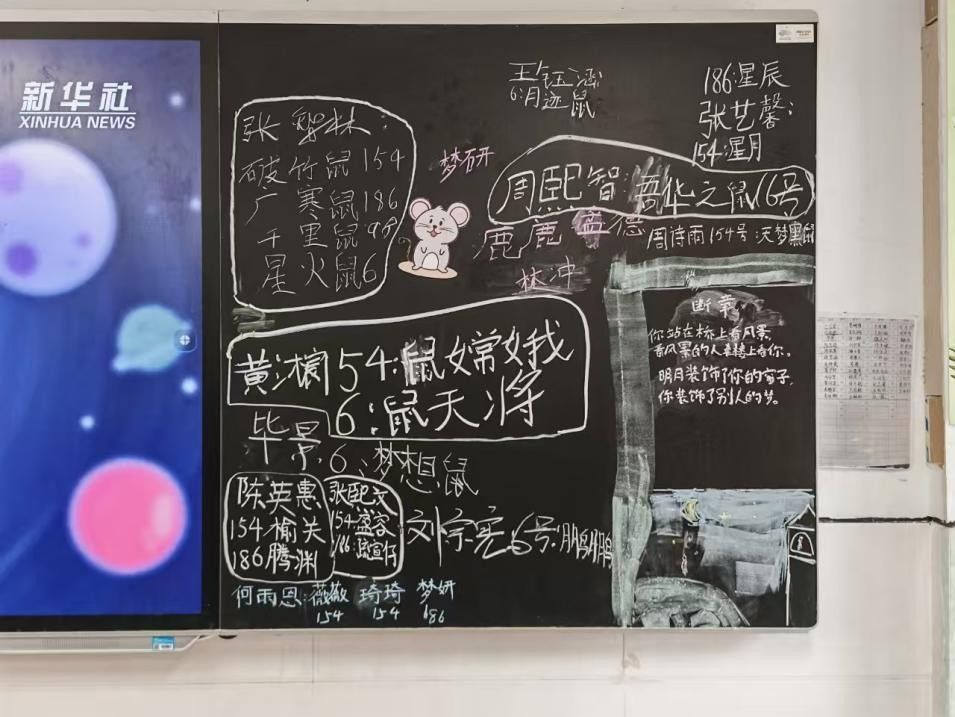 新华社
XINHUA NEWS
王钰涵
6:月迹鼠
186:星辰
张艺馨:
154:星月
张黎林:
破竹鼠154
广寒鼠186
千里鼠98
星火鼠6
梦研
周熙智:吾华之鼠16号
鹿鹿 盖德
周诗雨154号:沃梦黑鼠
林冲
断章:
你站在桥上看风景,
看风景的人在楼上看你。
明月装饰了你的窗子,
你装饰了别人的梦。
黄 54:鼠嫦娥
6:鼠天将
毕景6、梦想鼠
陈英惠
154榆关
186腾渊
张熙文
154:盛容
186:
刘宗宪:6号:鹏鹏
何雨恩:薇薇 琦琦 梦妍
154 154 686